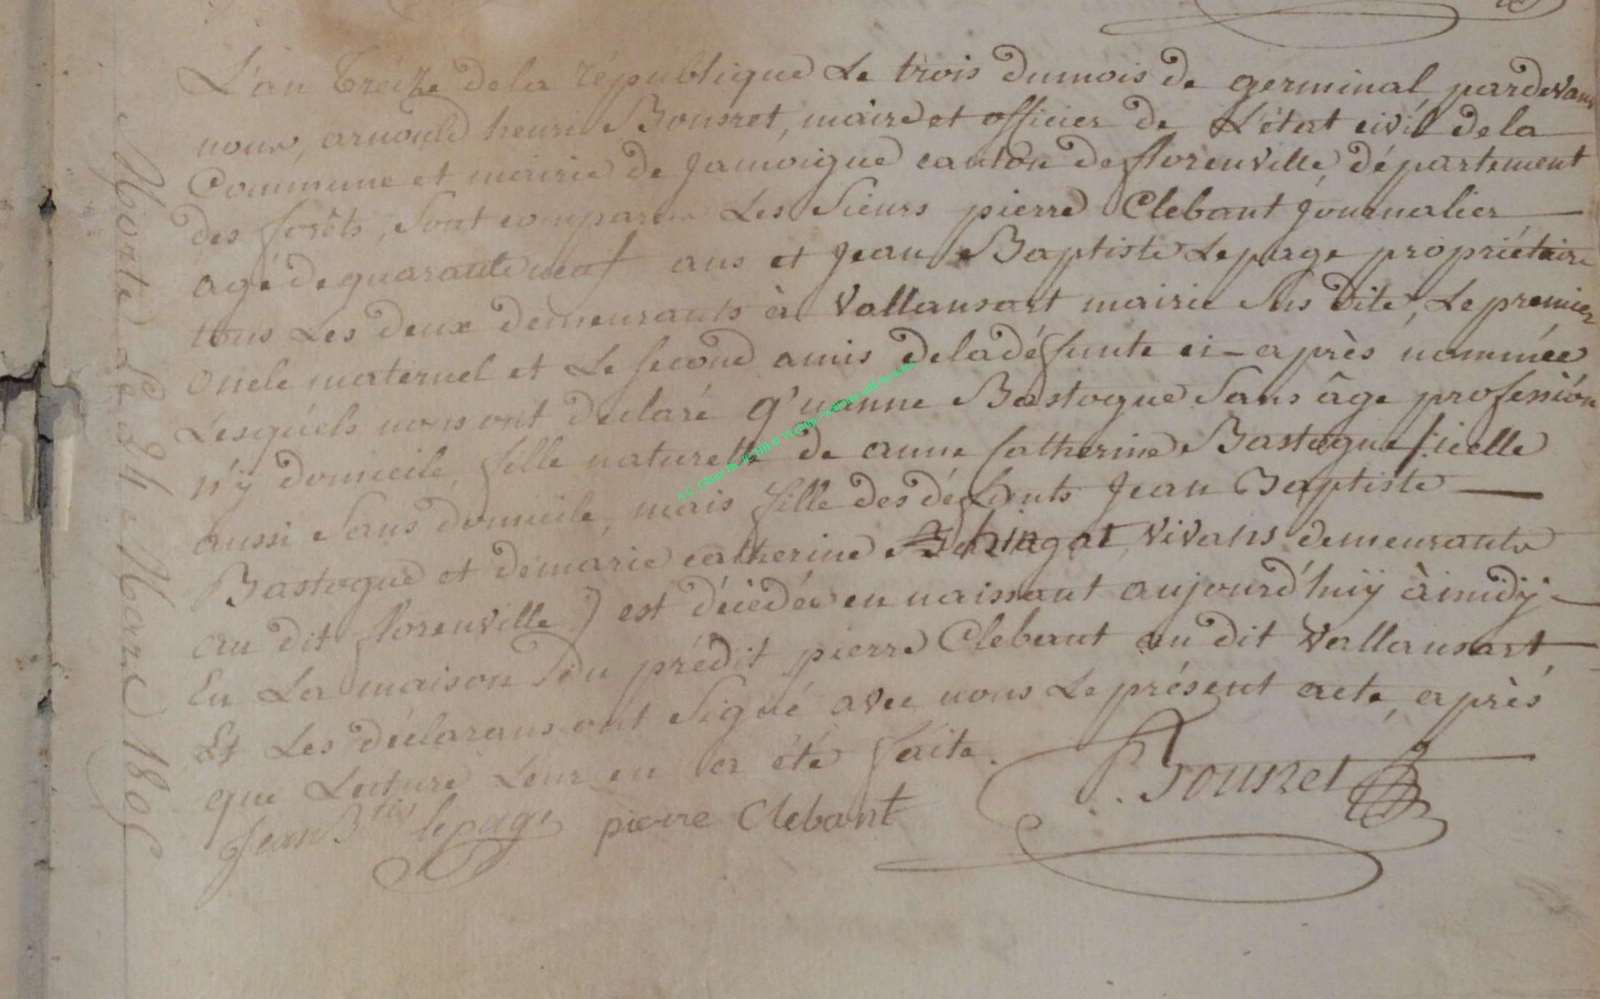 L'an treize de la république le trois du mois de germinal pardevant
nous, arnould henri Bousret, maire et officier de L'état civil de la
Commune et mairie de Jamoigne canton de florenville, département
des forêts, Sont comparus Les Sieurs pierre Clebant journalier
agé de quarante neuf ans et Jean Baptiste Lepage propriétaire
tous Les deux demeurants à Vallansart mairie Sus dite, Le premier
oncle maternel et Le second amis de la défunte ci-après nommée
Lesquels nous ont declaré q'uanne Bastogne Sans âge profession
n'y domicile, fille naturelle de anne Catherine Bastogne (: icelle
aussi Sans domicile, mais fille des défunts Jean Baptiste
Bastogne et de marie catherine vivans demeurants
au dit florenville) est décédée en naissant aujourd'huÿ à midÿ
En La maison du prédit pierre Clebant au dit Vallansart
Et Les déclarans ont Signé avec nous Le présent acte, après
que Lecture Leur en a été faite.
Jean Btis lepage pierre Clebant Bousret
Morte Le 24 e Mars 1805